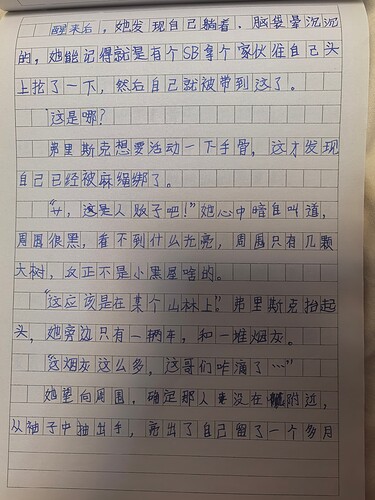 醒来后，她发现自己躺着，脑袋晕沉沉
的，她能记得就是有个SB拿个家伙往自己头
上抡了一下，然后自己就被带到这了。
“这是哪？”
弗里斯克想要活动一下手骨，这才发现
自己已经被麻绳绑了。
“艹，这是人贩子吧！”她心中暗自叫道，
周围很黑，看不到什么光亮，周围只有几颗
大树，反正不是小黑屋啥的。
“这应该是在某个山林上”弗里斯克抬起
头，她旁边只有一辆车，和一堆烟灰。
“这烟灰这么多，这哥们咋滴了…”
她望向周围，确定那人没在附近，
从袖子中抽出手，弄出了自己留了一个多月